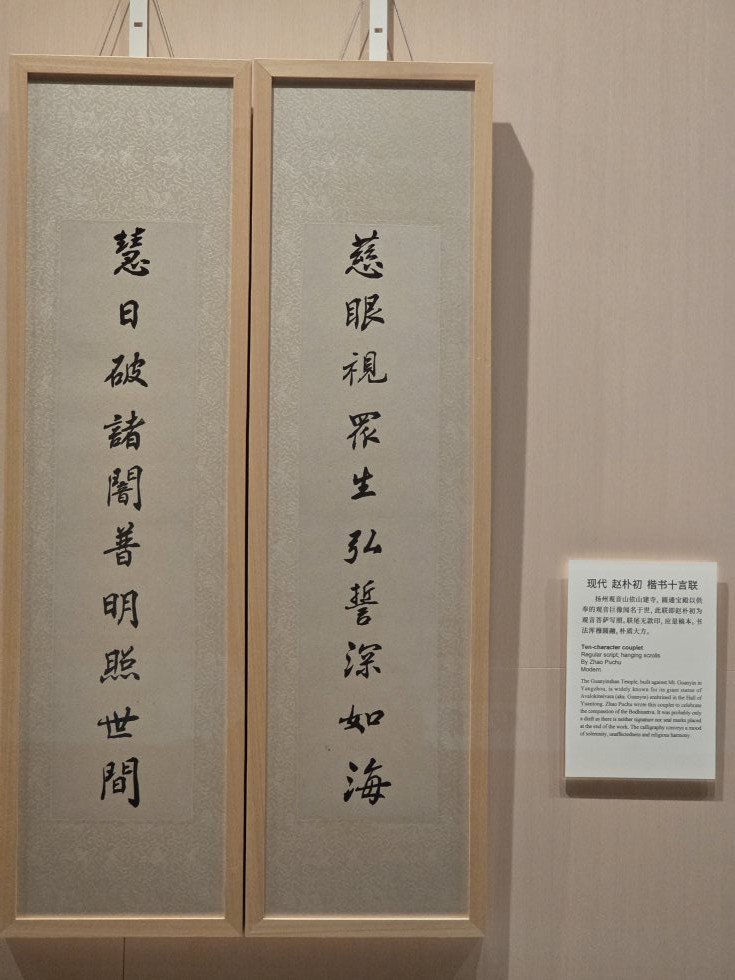 慈眼視眾生弘誓深如海
慧日破諸闇普明照世間
现代 赵朴初 楷书十言联
扬州观音山依山建寺，圆通宝殿以供
奉的观音巨像闻名于世，此联即赵朴初为
观音菩萨写照。联尾无款印，应是稿本。书
法浑穆圆融，朴质大方。
Ten-character couplet
Regular script, hanging scrolls
By Zhao Puchu
Modern
The Guanyinshan Temple, built against Mt. Guanyin in
Yangzhou, is widely known for its giant statue of
Avalokitesvara (aka. Guanyin) enshrined in the Hall of
Yuantong. Zhao Puchu wrote this couplet to celebrate
the compassion of the Bodhisattva. It was probably only
a draft as there is neither signature nor seal marks placed
at the end of the work. The calligraphy conveys a mood
of solemnity, unaffectedness and religious harmony.